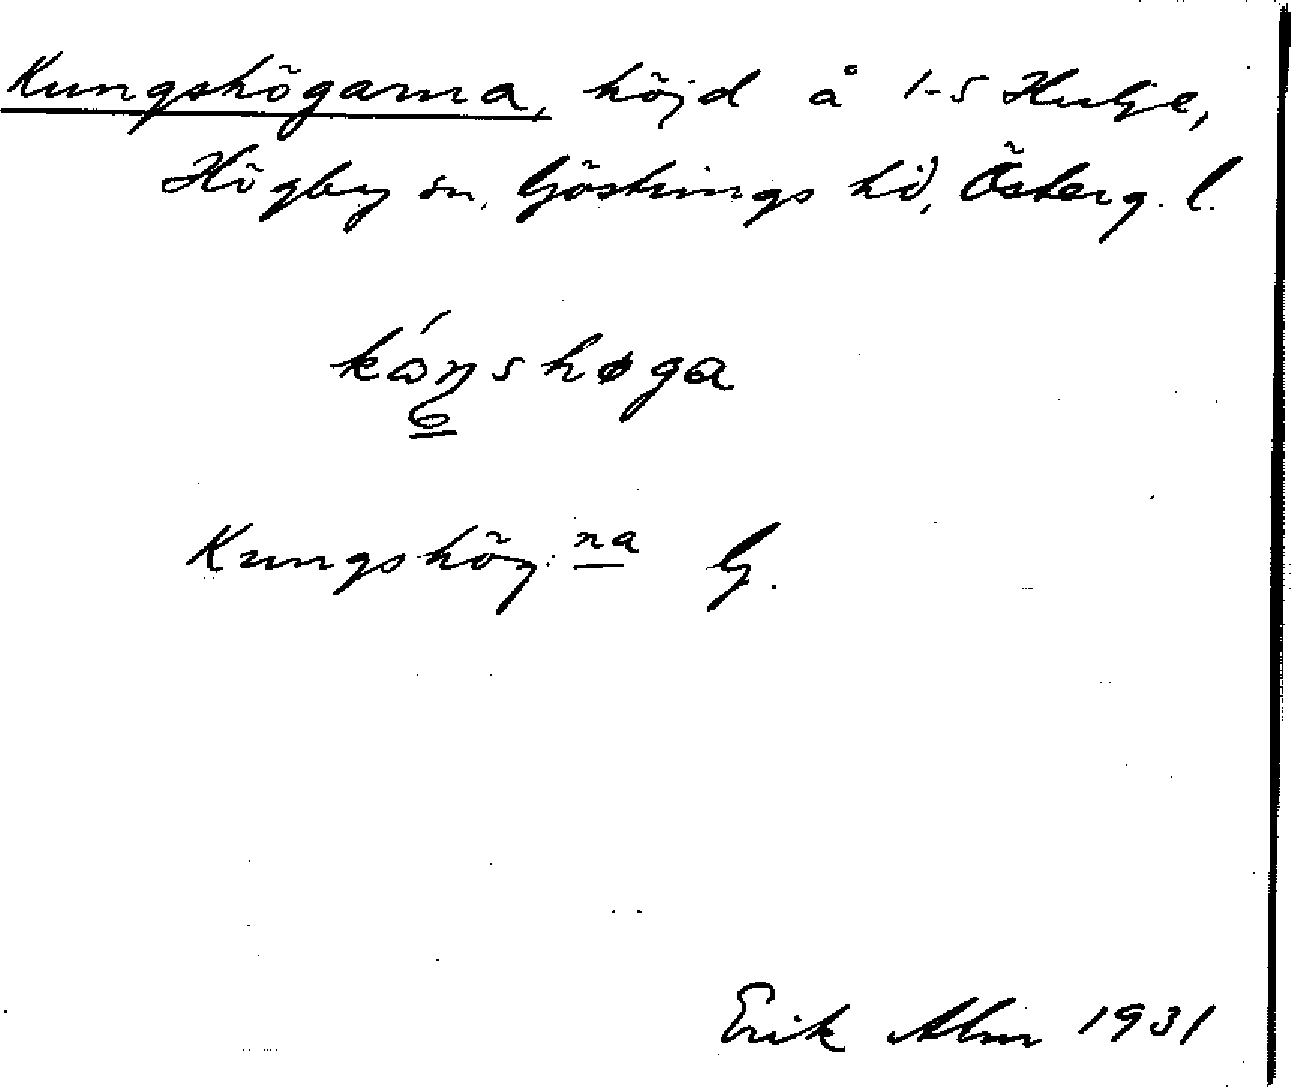 Kungshögarna, höjd å 1-5 Hulje,
Högby sn, Göstrings hd, Österg. l.
kóŋshøga
Kungshög: na G.
Erik Alm 1931